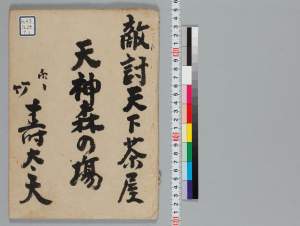 敵討天下茶屋
天神森の場
寿太夫